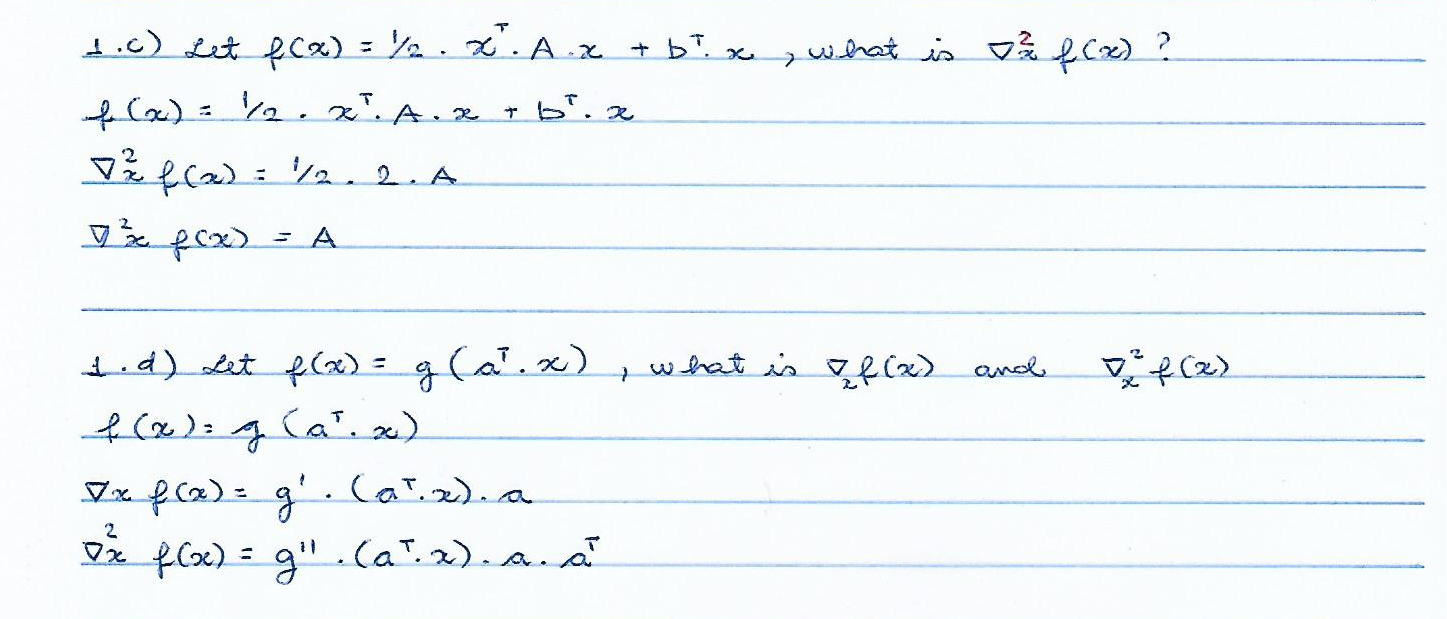 1.c) Let f(x) = 1/2 . xᵀ. A .x + bᵀ. x , what is ∇²x f(x) ?
f(x) = 1/2 . xᵀ. A . x + bᵀ. x
∇²x f(x) = 1/2 . 2 . A
∇²x f(x) = A
1.d) Let f(x) = g (aᵀ. x) , what is ∇x f(x) and ∇²x f(x)
f(x) = g (aᵀ. x)
∇x f(x) = g' . (aᵀ.x) . a
∇²x f(x) = g'' . (aᵀ.x) . a . aᵀ